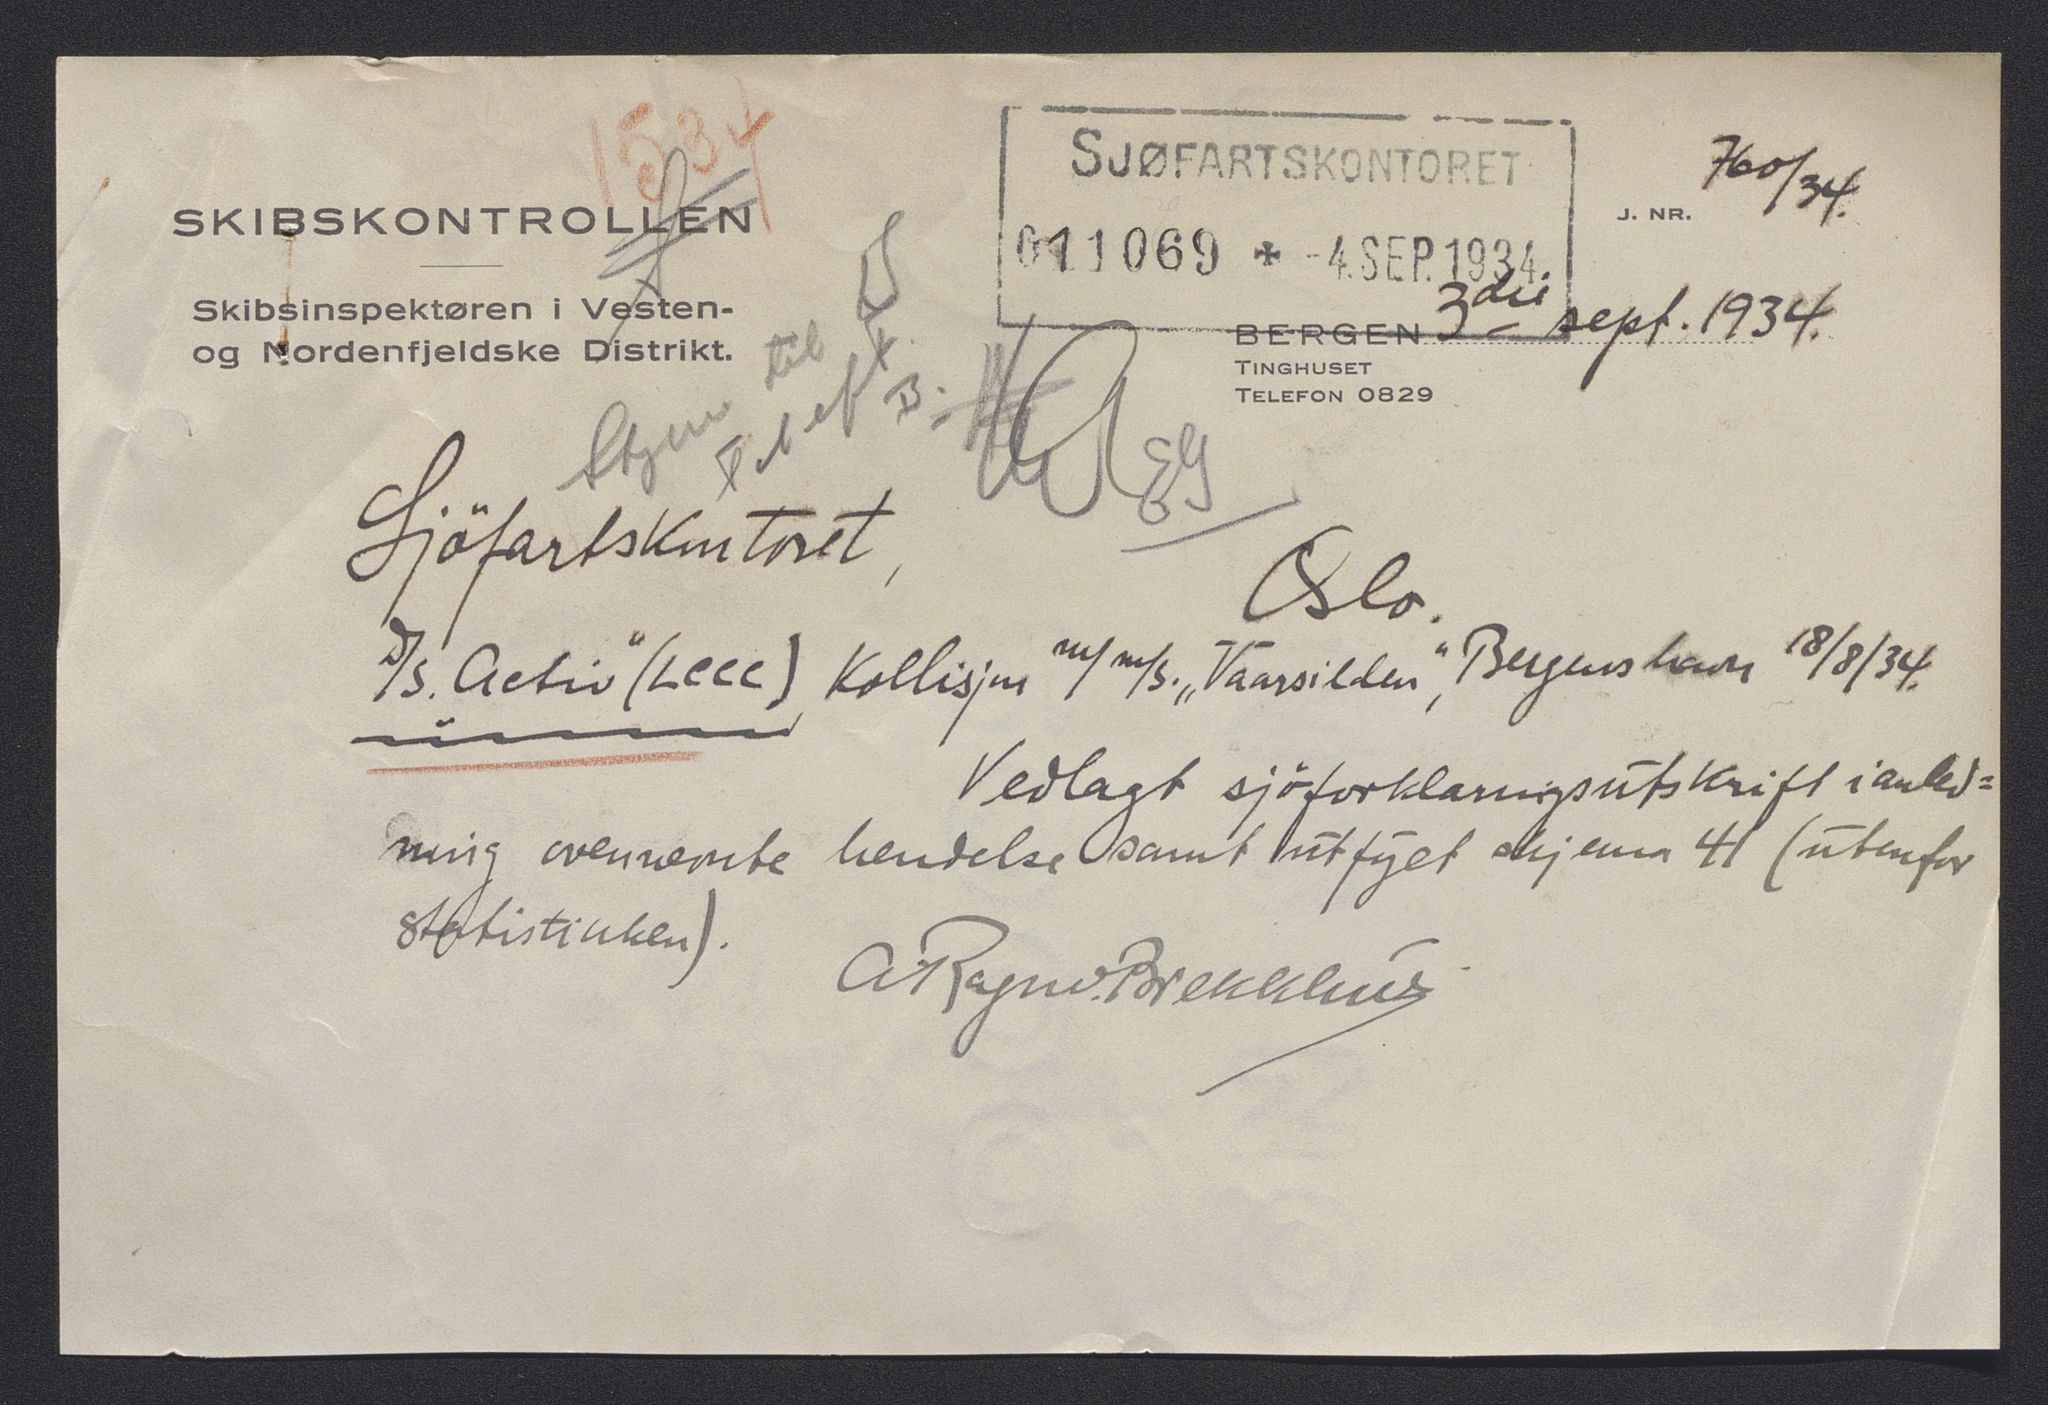 1534
SKIBSKONTROLLEN
Skibsinspektøren i Vesten-
og Nordenfjeldske Distrikt.
SJØFARTSKONTORET
011069 * -4.SEP.1934
J. NR. 760/34.
BERGEN 3die sept. 1934.
TINGHUSET
TELEFON 0829
til
EG
Sjöfartskontoret,
Oslo.
D/S. Activ" (LCCC) Kollisjon m/ m/s. „Vaarsilden", Bergens havn 18/8/34.
Vedlagt sjöforklaringsutskrift i anled=
ning ovennevnte hendelse samt utfyllt skjema 41 (utenfor
statistikken).
A Ragnv. Brekkhus